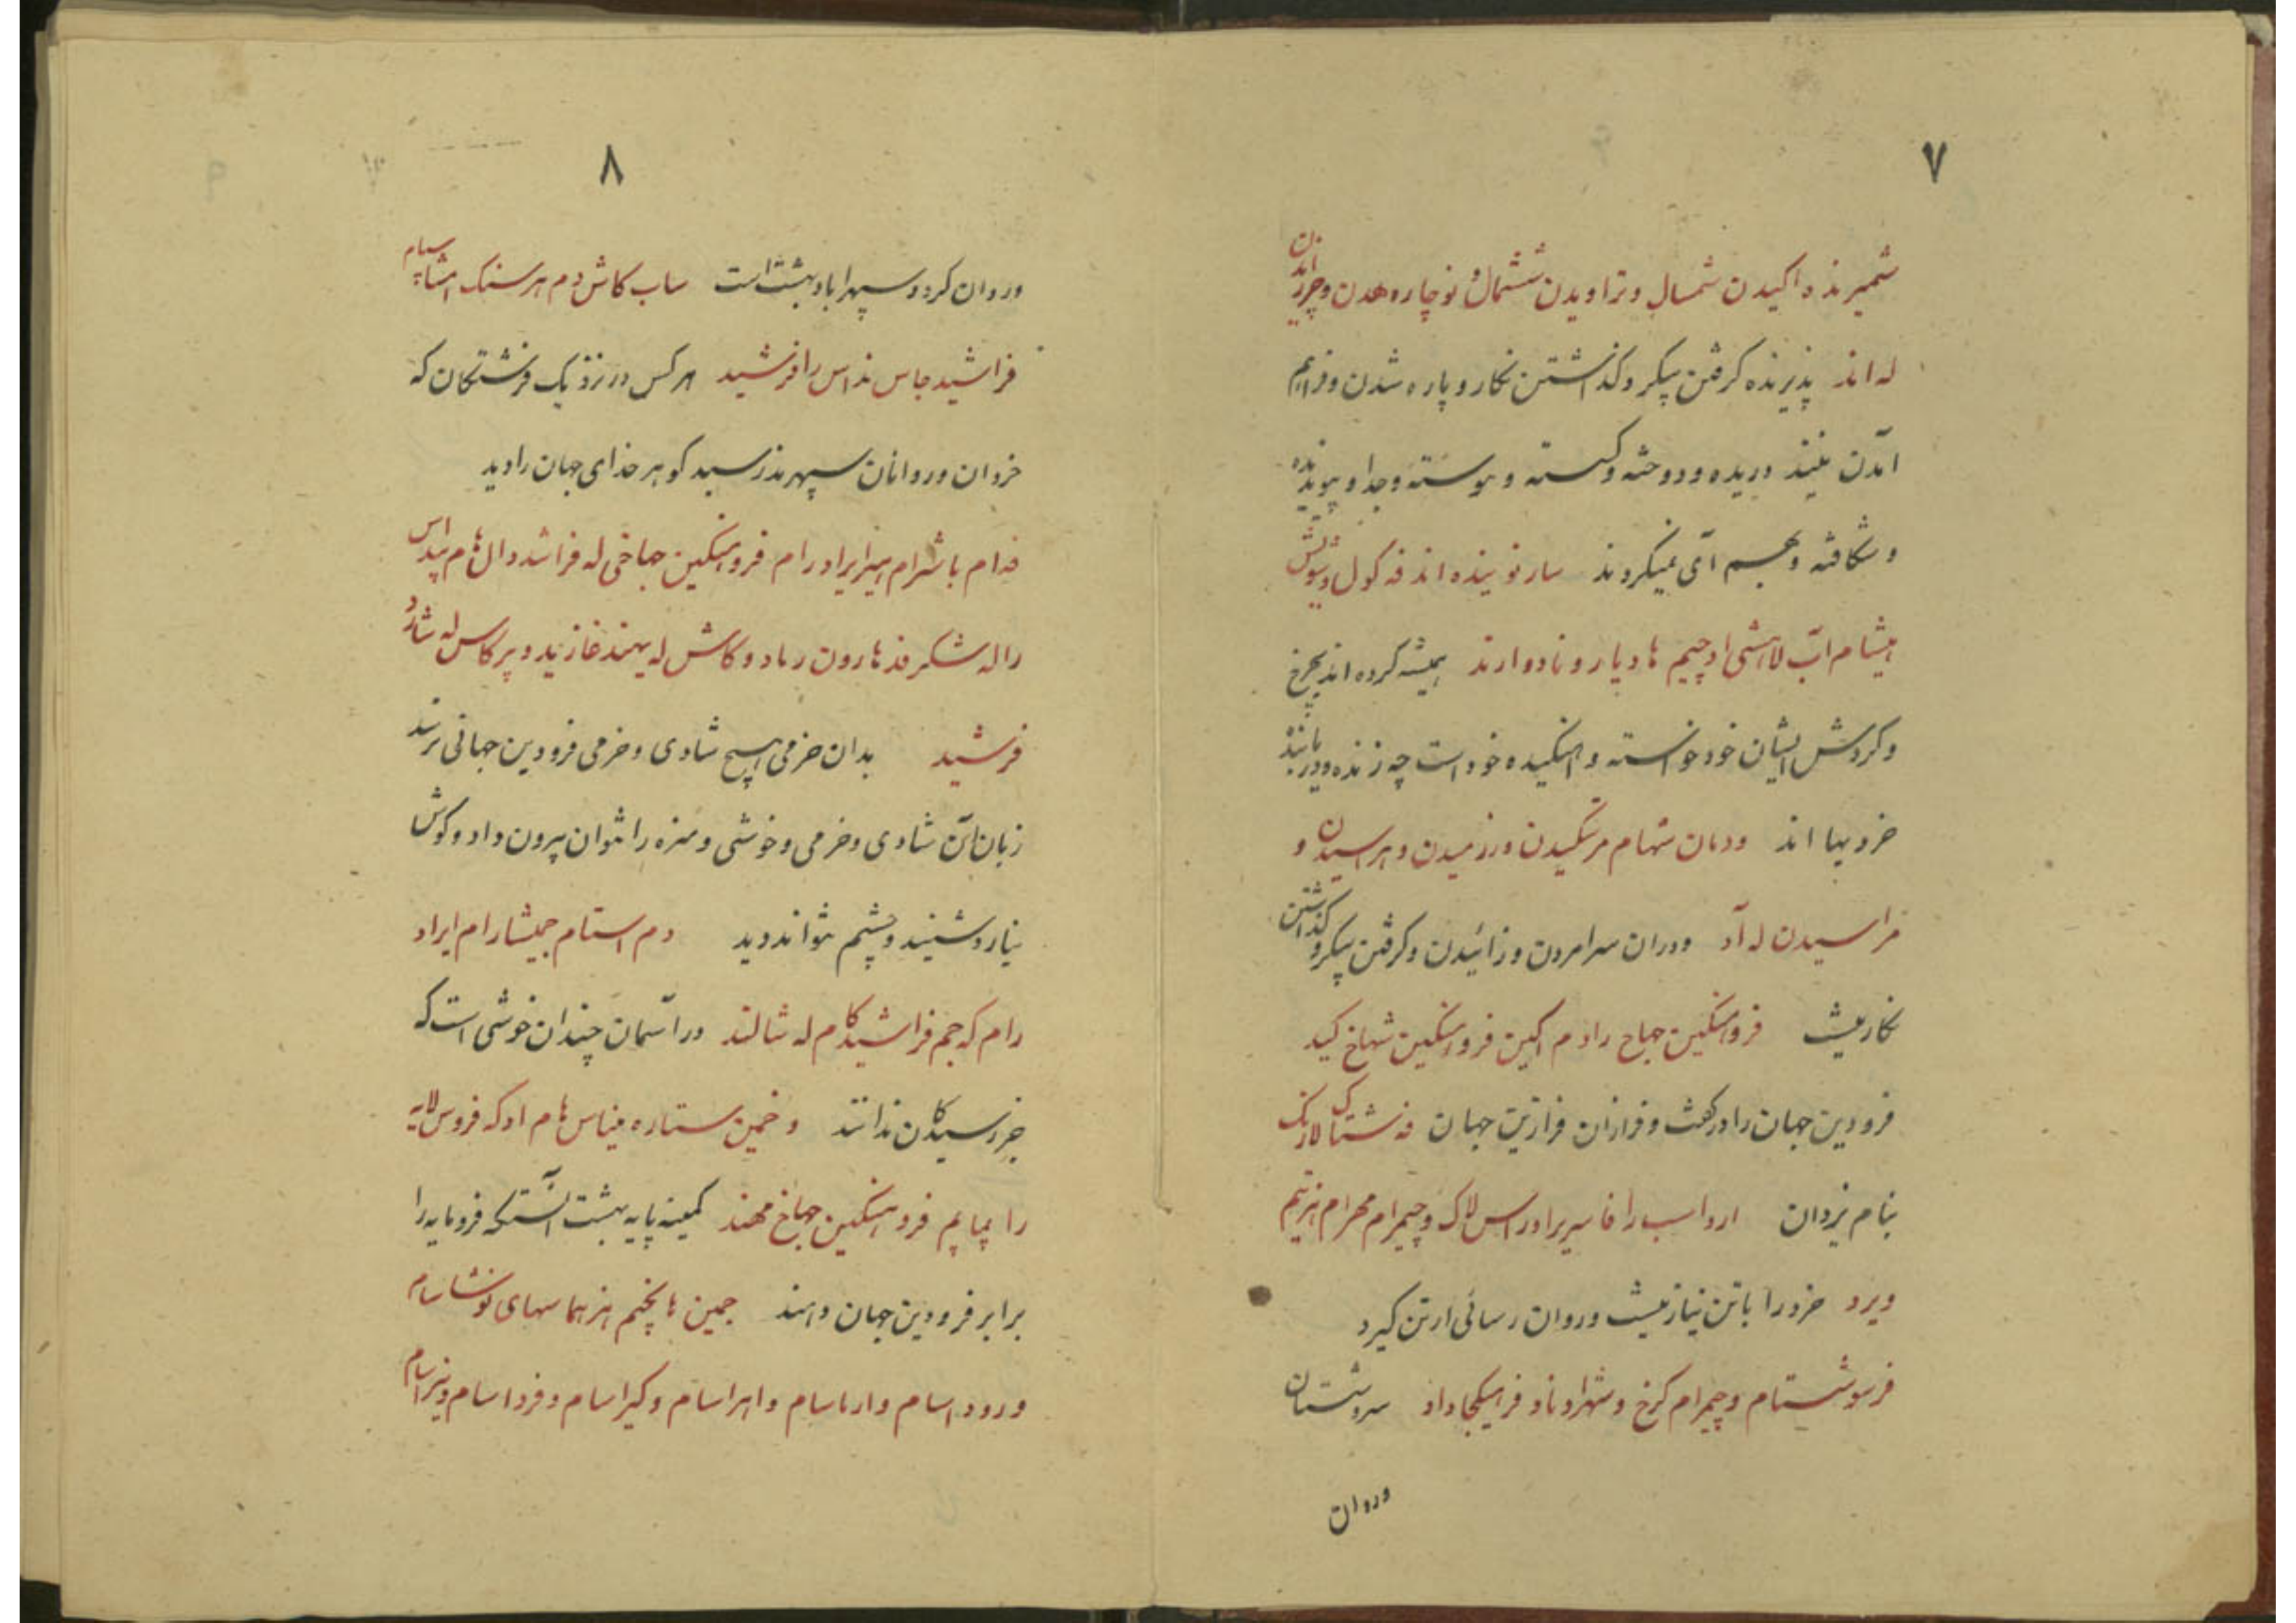 ۷
شمیرنده اکیدن شمسال و تراویدن ششمال و نوچاره هدن و چرز اندن
له اند پذیرنده گرفتن پیکر و کذاشتن نکار و پاره شدن و فراهم
آمدن نیند دریده و دوخته و کسسته و پیوسته و جدا و پیونده
و شکافته و بهم آی نمیکردند سارنو نیده اند فه کول و
هیشام آب لاهشی اد چیم هادیار و نادوارند همیشه کرده اند بچرخ
و کردش ایشان خود خواسته و اهنکیده خود است چه زنده و دریابنده
خردیها اند و دمان شهام مرتکیدن ورزمیدن و هراسیدن و
مراسیدن له آد و دران سرا مردن و زائیدن و کرفتن پیکر و کذاشتن
نکار نیست فروهنکین جهاخ رادم اکین فروهنکین شهاخ کید
فرودین جهان را در کفت و فرازان فرازین جهان فه شتا لارنک
بنام یزدان ارواسب را فا سریراد راس لاک و چیمرام محرام هنرتیم
ویرد خرد را باتن نیاز نیست و روان رسائی از تن کیرد
فرسوشستام و چمرام کرخ و شهراد ناد فرهیکجا داد سروشستان
وروان
۸
وروان کرد و سپهراباد بهشت است ساب کاش دم هرسنک امشاسپام
فراشید جاس نداس را فرشید هر کس در نزدیک فرشتکان که
خردان و روانان سپهرند رسید کوهر خدای جهان را دید
فدام باشرام هیرایراد رام فروهنکین جهاخی له فراشد دال هام پنداس
راله شکرفد نارون رماد و کاش له یهند غازید و پرکاس له شارد
فرشید بدان خرمی هیچ شادی و خرمی فرودین جهانی نرسد
زبان آن شادی و خرمی و خوشی و مزه را نتوان بیرون داد و کوش
نیارد شنید و چشم نتواند دید دم استام جیشارام ایراد
رام که جم فراشیدکام له شالند در آسمان چندان خوشی است که
جز رسیدکان ندانند و خمین ستاره میناس هام اد که فروس لایه
را پماپم فروهنکین جهاخ مهند کمینه پایه بهشت آنستکه فرومایه را
برابر فرودین جهان دهند جمین هاپخیم هنرهما سهای نوشاسام
و رود اسام و ارماسام و اهراسام و کیراسام و فرداسام و نیراسام